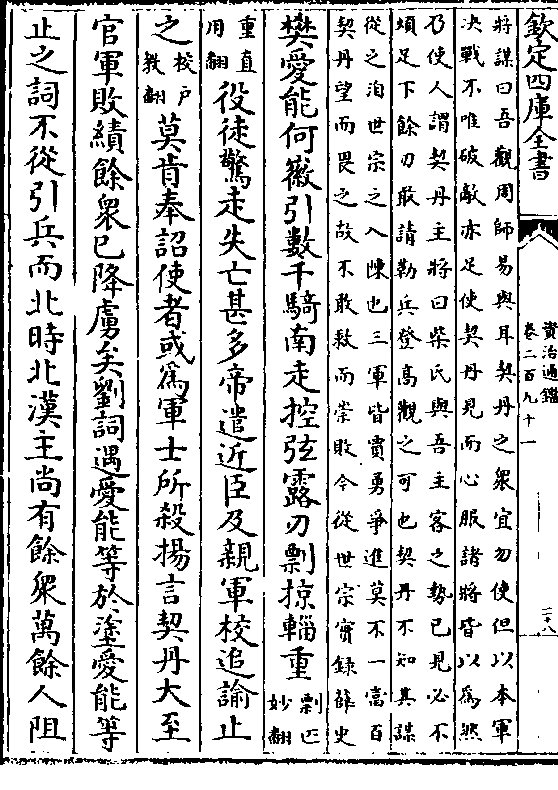 欽定四庫全書
資治通鑑
卷二百九十一
三八
將謀曰吾觀周師易與耳契丹之衆宜勿使但以本軍
决戰不唯破敵亦足使契丹見而心服諸將皆以為然
乃使人謂契丹主將曰柴氏與吾主客之勢已見必不
煩足下餘刃敢請勒兵登高觀之可也契丹不知其謀
從之洎世宗之入陳也三軍皆賈勇爭進莫不一當百
契丹望而畏之故不敢救而崇敗今從世宗實録薛史
樊愛能何徽引數千騎南走控弦露刃剽掠輜重剽匹妙翻
重直用翻役徒驚走失亡甚多帝遣近臣及親軍校追諭止
之校户教翻莫肯奉詔使者或為軍士所殺揚言契丹大至
官軍敗績餘衆已降虜矣劉詞遇愛能等於塗愛能等
止之詞不從引兵而北時北漢主尚有餘衆萬餘人阻